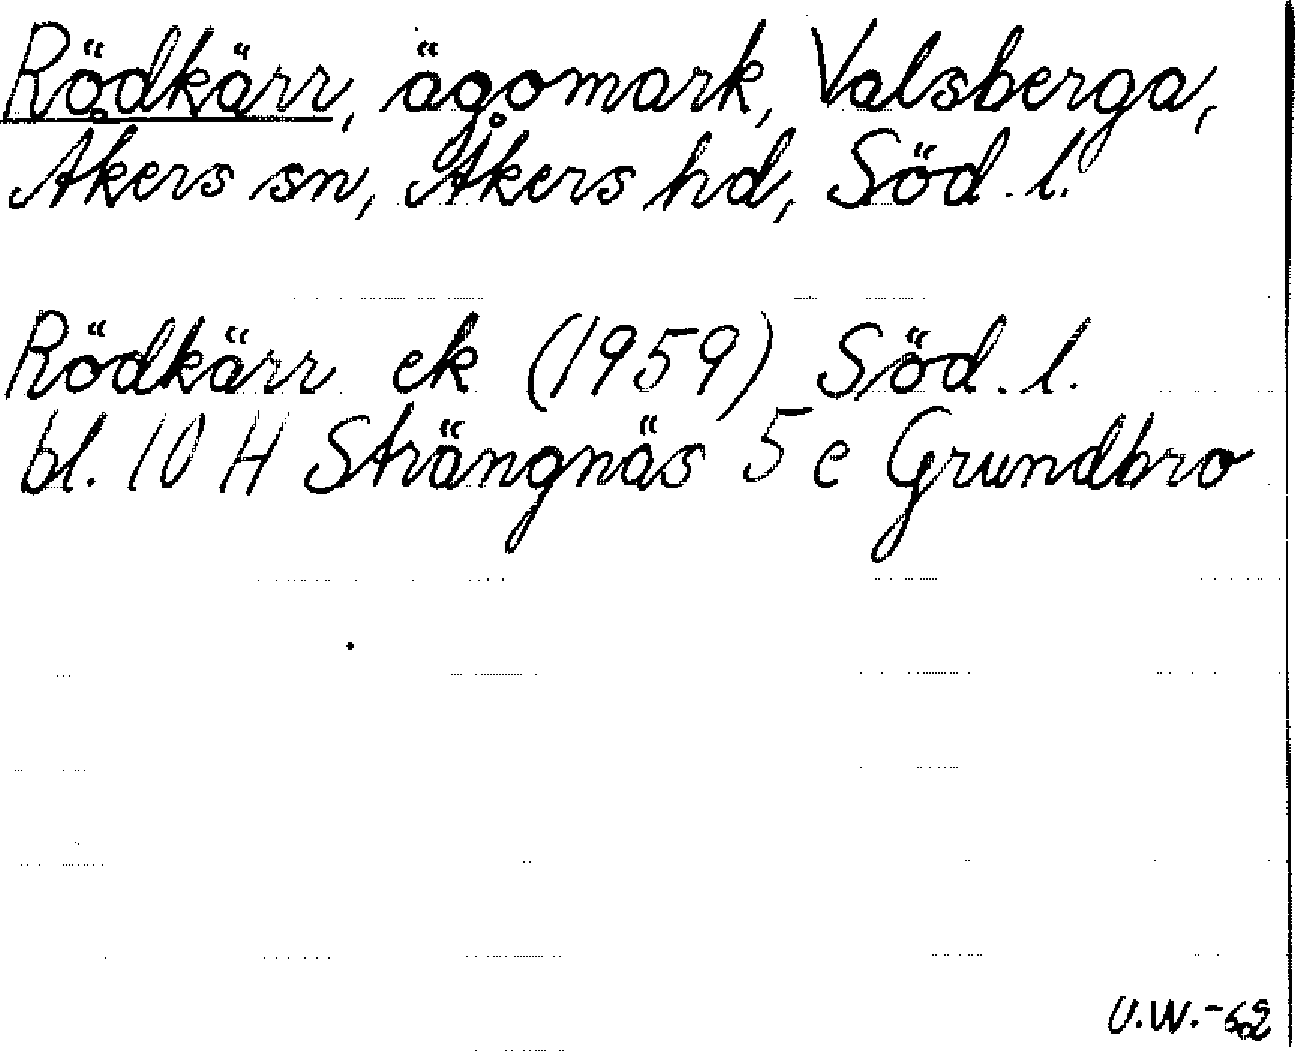 Rödkärr, ägomark, Valsberga,
Åkers sn, Åkers hd, Söd. l.
Rödkärr ek (1959) Söd. l.
bl. 10 H Strängnäs 5 e Grundbro
U.W.-62